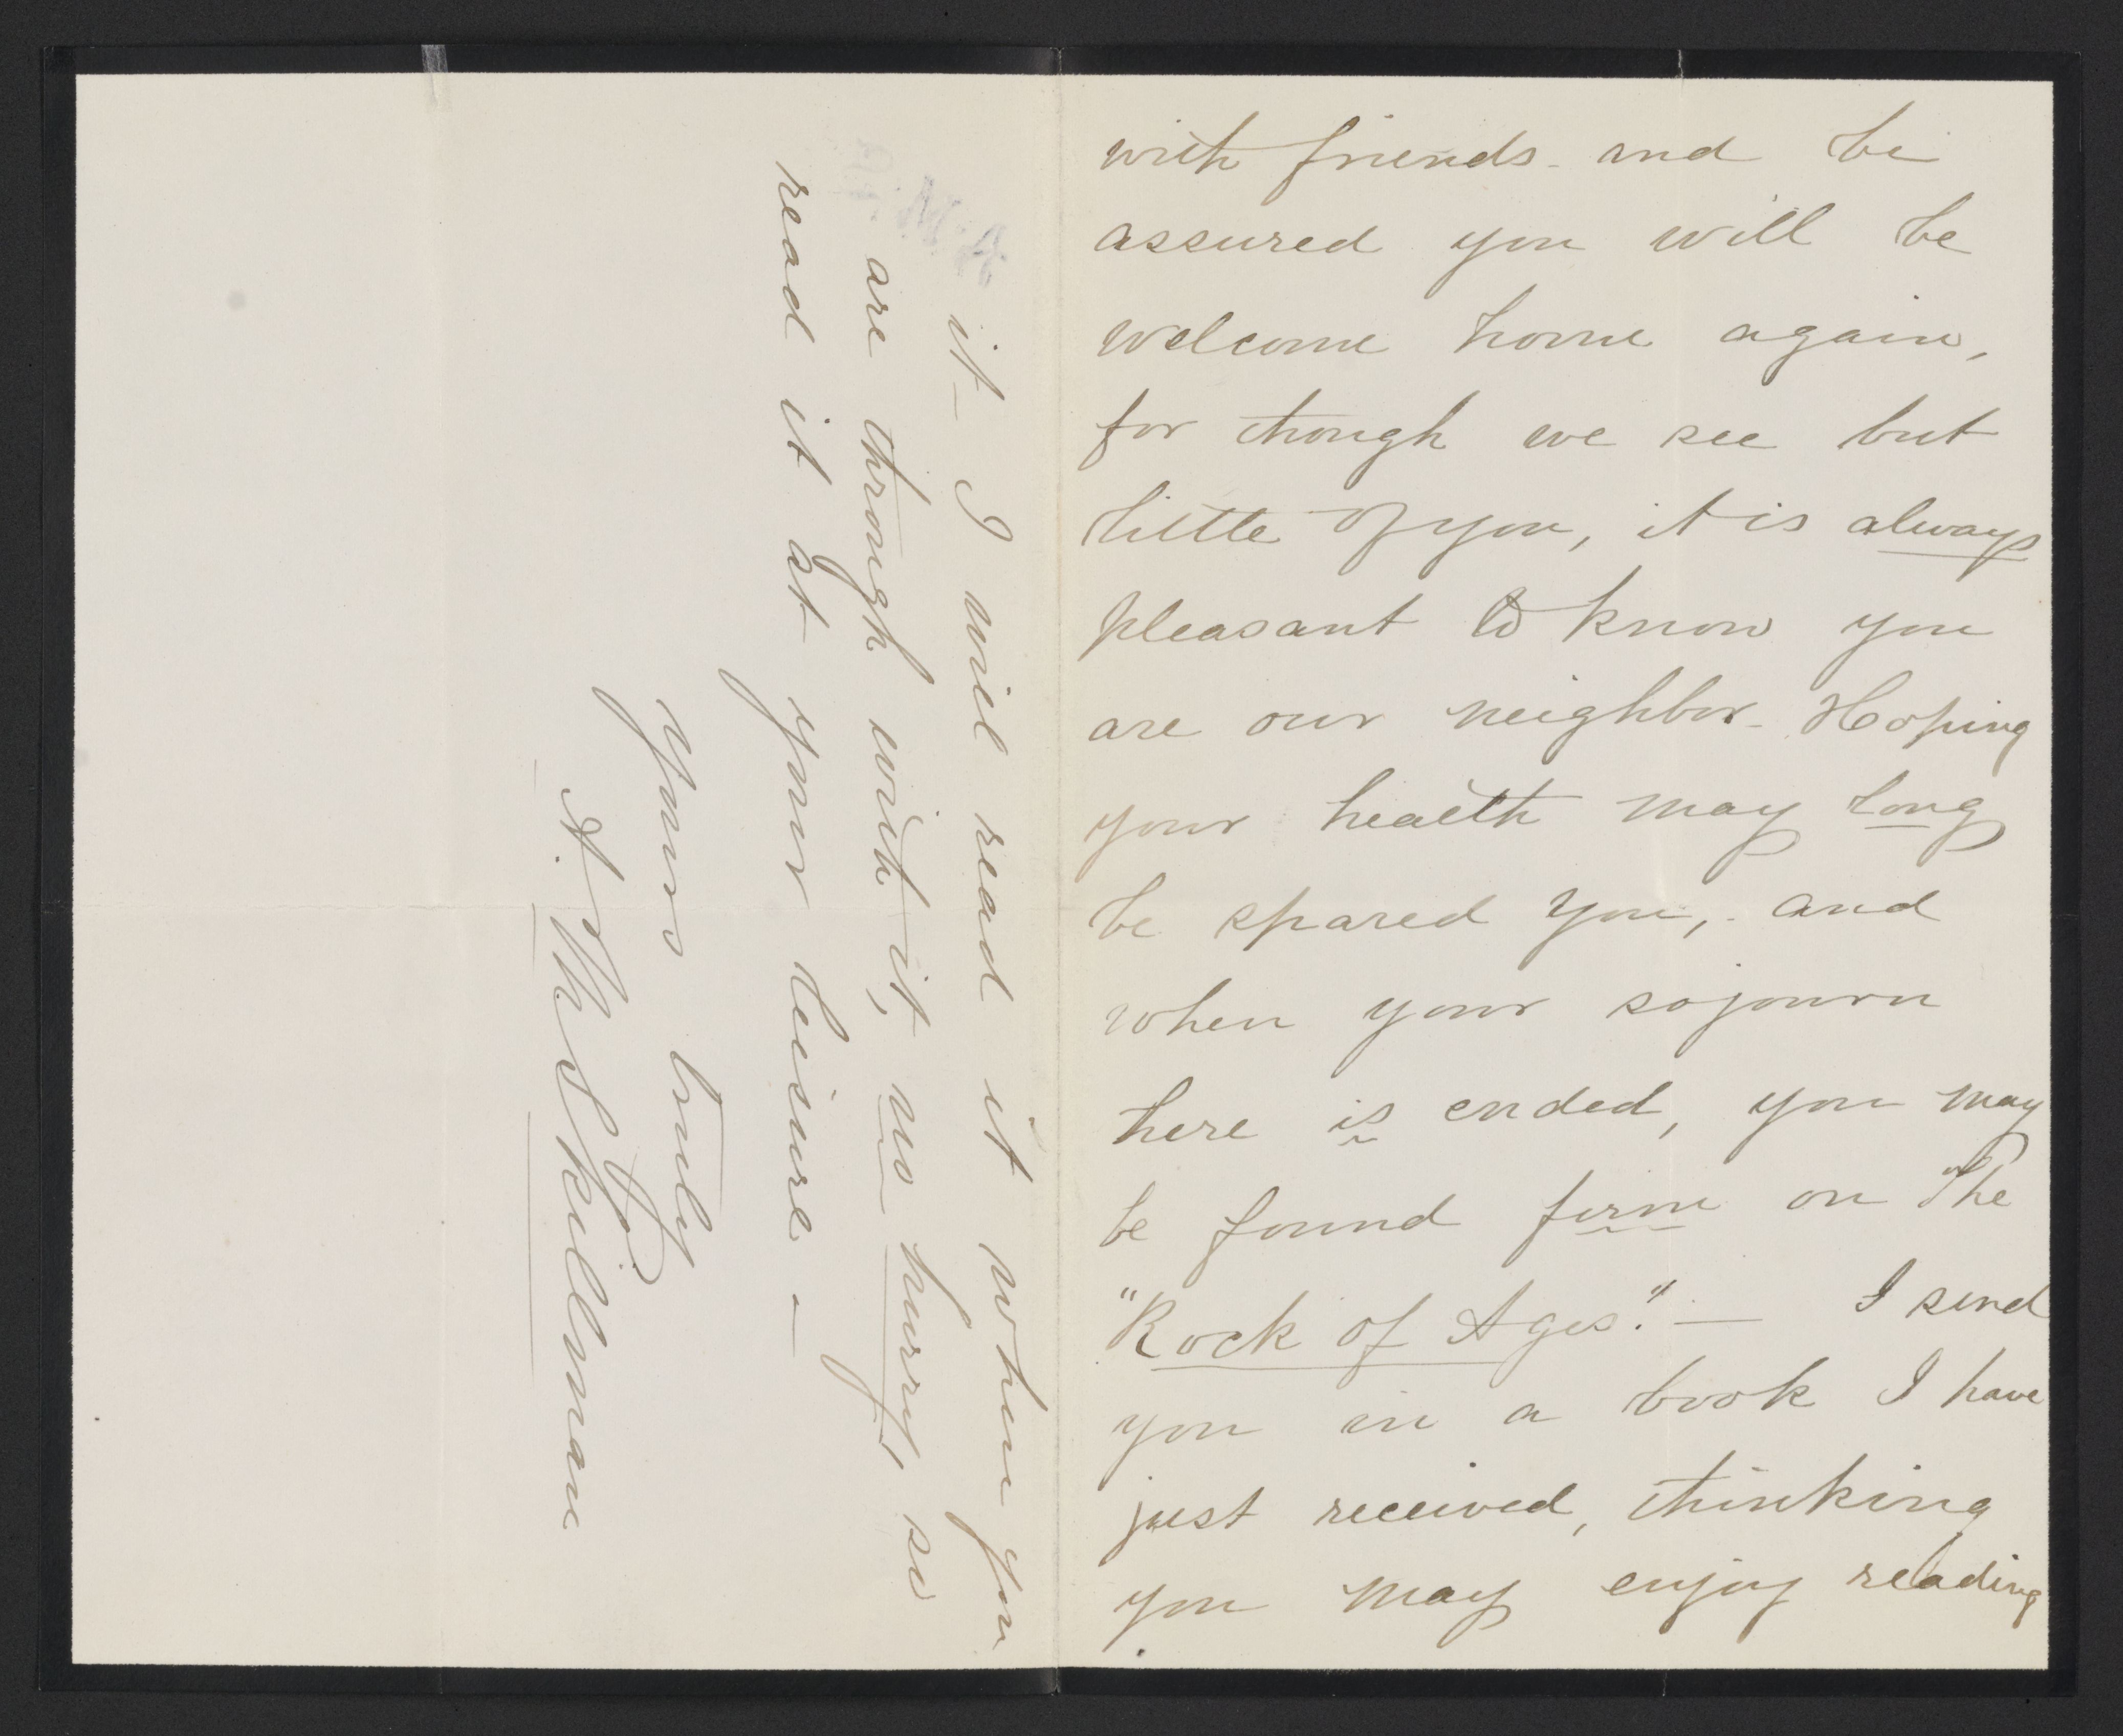 with friends - and be
assured you will be
welcome home again,
for though we see but
little of you, it is always
pleasant to know you
are our neighbor - Hoping
your health may long
be spared you, - and
when your sojourn
here is ended, you may
be found firm on The
"Rock of Ages." — I send
you in a book I have
just received, thinking
you may enjoy reading
it - I will read it when you
are through with it, no hurry, so
read it at your leisure -
Yours truly
A. M. Skillman